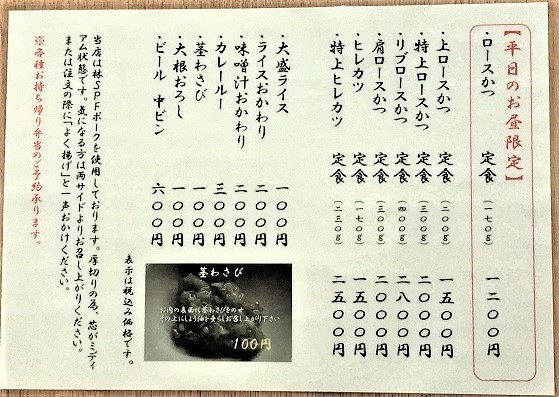 【平日のお昼限定】
・ロースかつ 定食 (一七〇g) 一二〇〇円
・上ロースかつ 定食 (二〇〇g) 一五〇〇円
・特上ロースかつ 定食 (三〇〇g) 二〇〇〇円
・リブロースかつ 定食 (四〇〇g) 二八〇〇円
・肩ロースかつ 定食 (三〇〇g) 二〇〇〇円
・ヒレカツ 定食 (一七〇g) 一五〇〇円
・特上ヒレカツ 定食 (二三〇g) 二五〇〇円
・大盛ライス 一〇〇円
・ライスおかわり 二〇〇円
・味噌汁おかわり 二〇〇円
・カレールー 三〇〇円
・茎わさび 一〇〇円
・大根おろし 一〇〇円
・ビール 中ビン 六〇〇円
茎わさび
お肉の表面に茎わさびをのせ
その上にしょうゆを垂らしてお召し上がり下さい
100円
表示は税込み価格です。
当店は林SPFポークを使用しております。厚切りの為、芯がミディ
アム状態です。気になる方は両サイドよりお召し上がりください。
または注文の際に「よく揚げ」と一声おかけください。
※各種お持ち帰り弁当のご予約承ります。